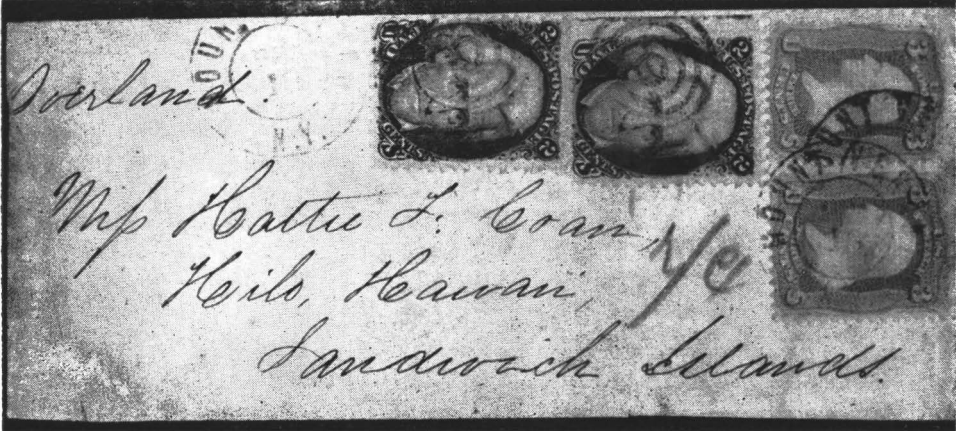 Overland.
N.Y.
Miss Hattie F. Coan,
Hilo, Hawaii,
Sandwich Islands.